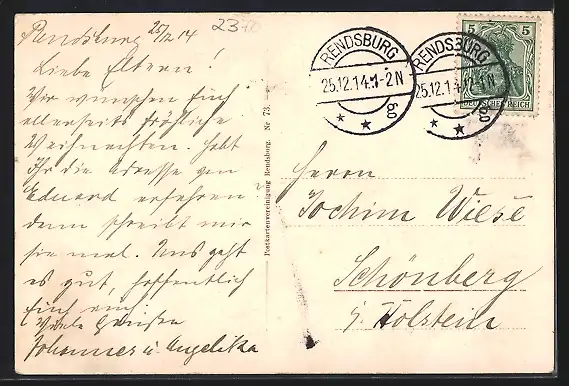 Rendsburg 25/12 14
237
Liebe Eltern!
Wir wünschen Euch
allerseits fröhliche
Weihnachten. Habt
Ihr die Adresse von
Eduard erfahren
dann schreibt mir
sie mal. Uns geht
es gut, hoffentlich
Euch auch
Viele Grüße
Johannes u. Angelika
Postkartenvereinigung Rendsburg. Nr 73.
RENDSBURG
25.12.14.1-2N
RENDSBURG
25.12.14
5 5
DEUTSCHES REICH
Herrn
Jochim Wiese
Schönberg
i. Holstein